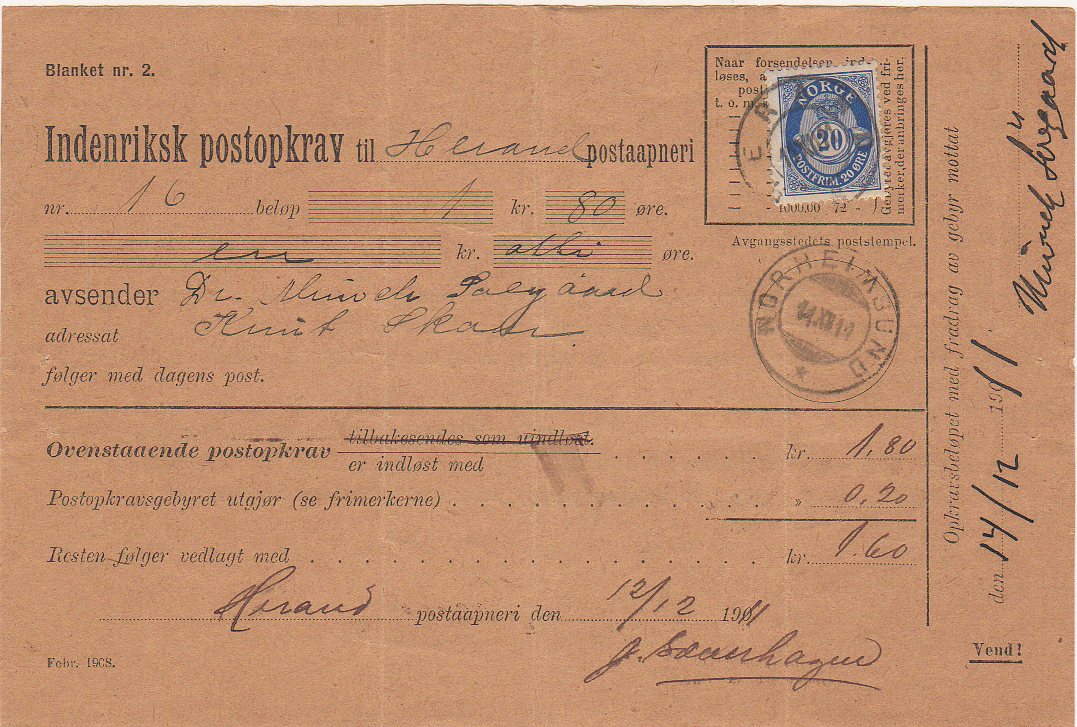 Blanket nr. 2.
Indenriksk postopkrav til Herand postaapneri
nr. 16 beløp 1 kr. 80 øre.
en kr. otti øre.
avsender Dr. Munch Søegaard
adressat Knut Skaar
følger med dagens post.
Naar forsendelsen inde-
løses, a
post
t. o. m.
Gebyret avgjøres ved fri-
merker, der anbringes her.
1000.00 72
NORGE
20
POSTFRIM. 20 ØRE
HERAND
Avgangsstedets poststempel.
NORHEIMSUND
Ovenstaaende postopkrav tilbakesendes som uindløst.
er indløst med kr. 1,80
Postopkravsgebyret utgjør (se frimerkerne) » 0,20
Resten følger vedlagt med kr. 1.60
Herand postaapneri den 12/12 1911
Febr. 1908.
Opkravsbeløpet med fradrag av gebyr mottat
den 14/12 1911 Munch Søegaard
Vend!